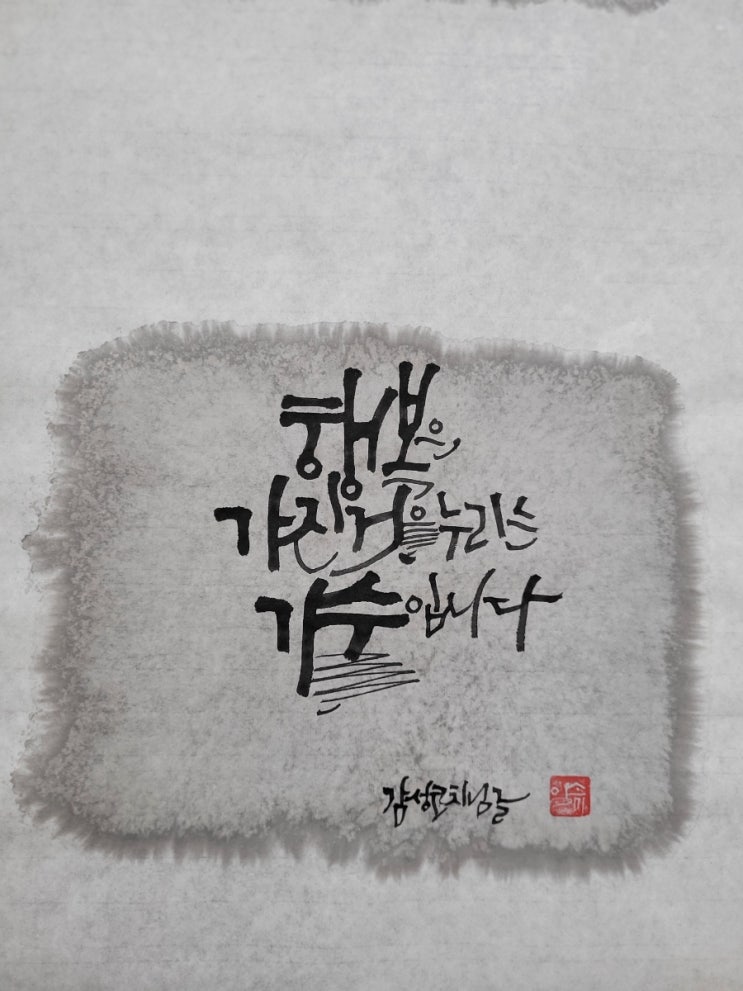 행복은
가진것을 누리는
기술입니다
감성코치님글